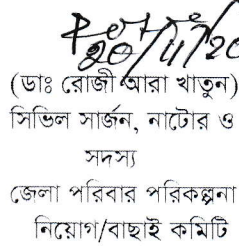 20/11/20
(ডাঃ রোজী আরা খাতুন)
সিভিল সার্জন, নাটোর ও
সদস্য
জেলা পরিবার পরিকল্পনা
নিয়োগ/বাছাই কমিটি